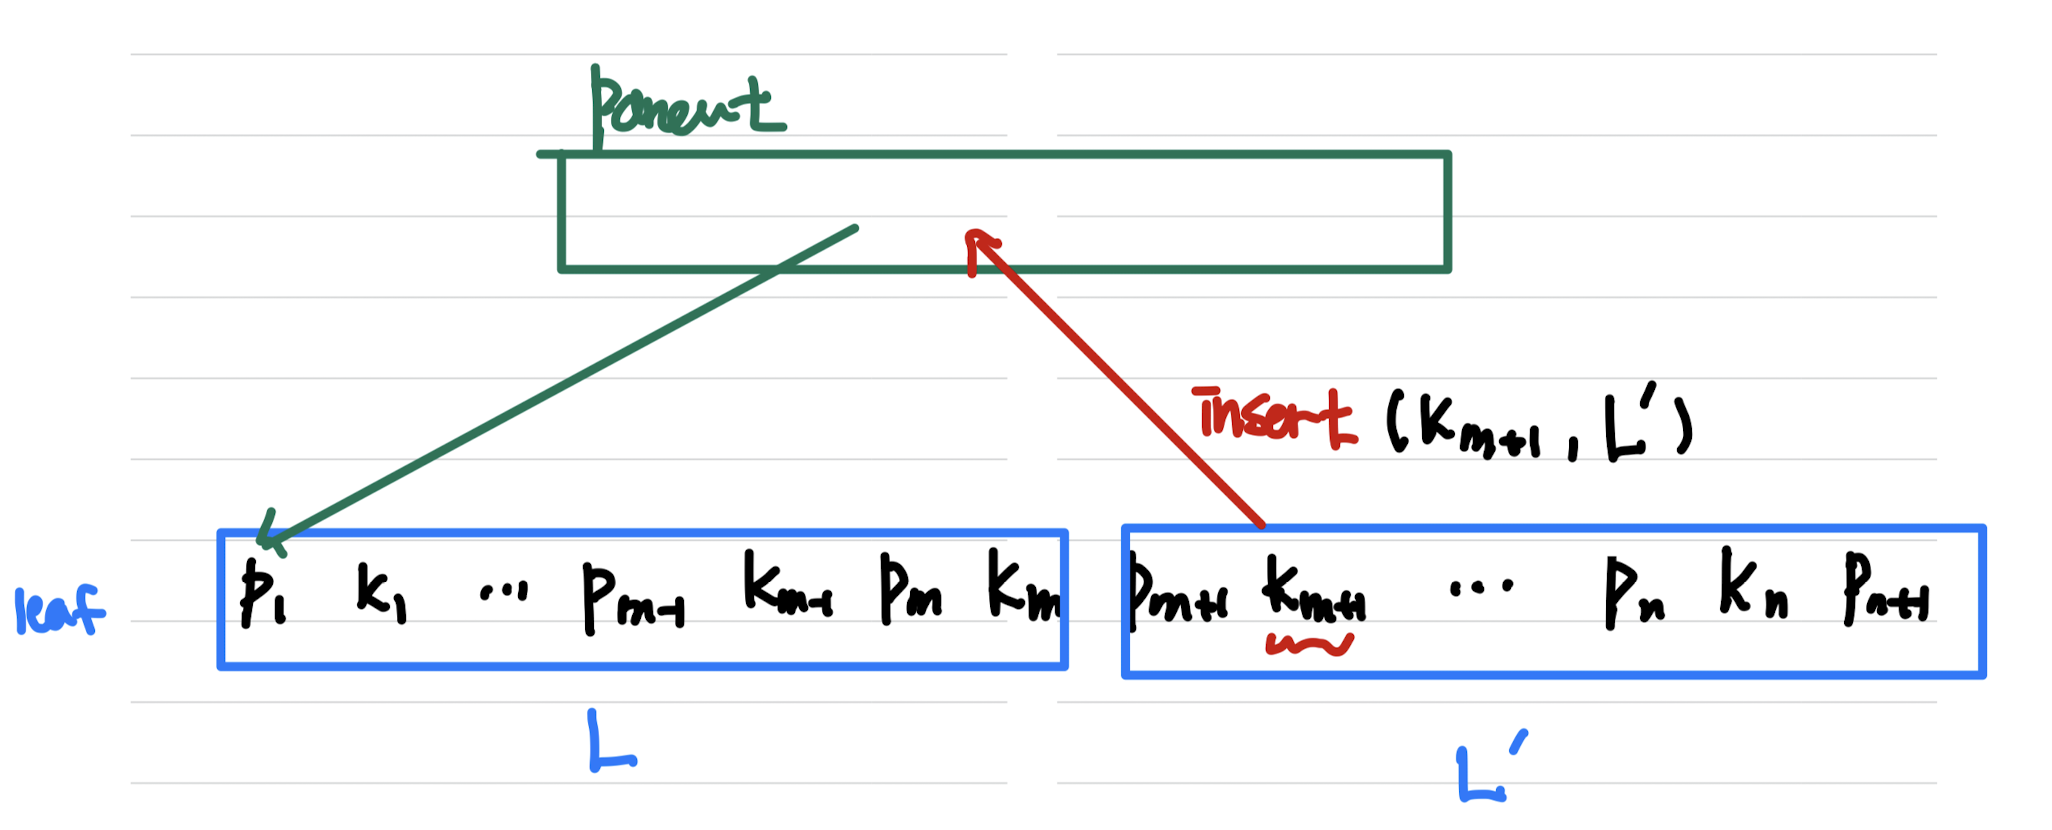 parent
insert (Km+1, L')
leaf P1 K1 ... Pm-1 Km-1 Pm Km Pm+1 Km+1 ... Pn Kn Pn+1
L L'